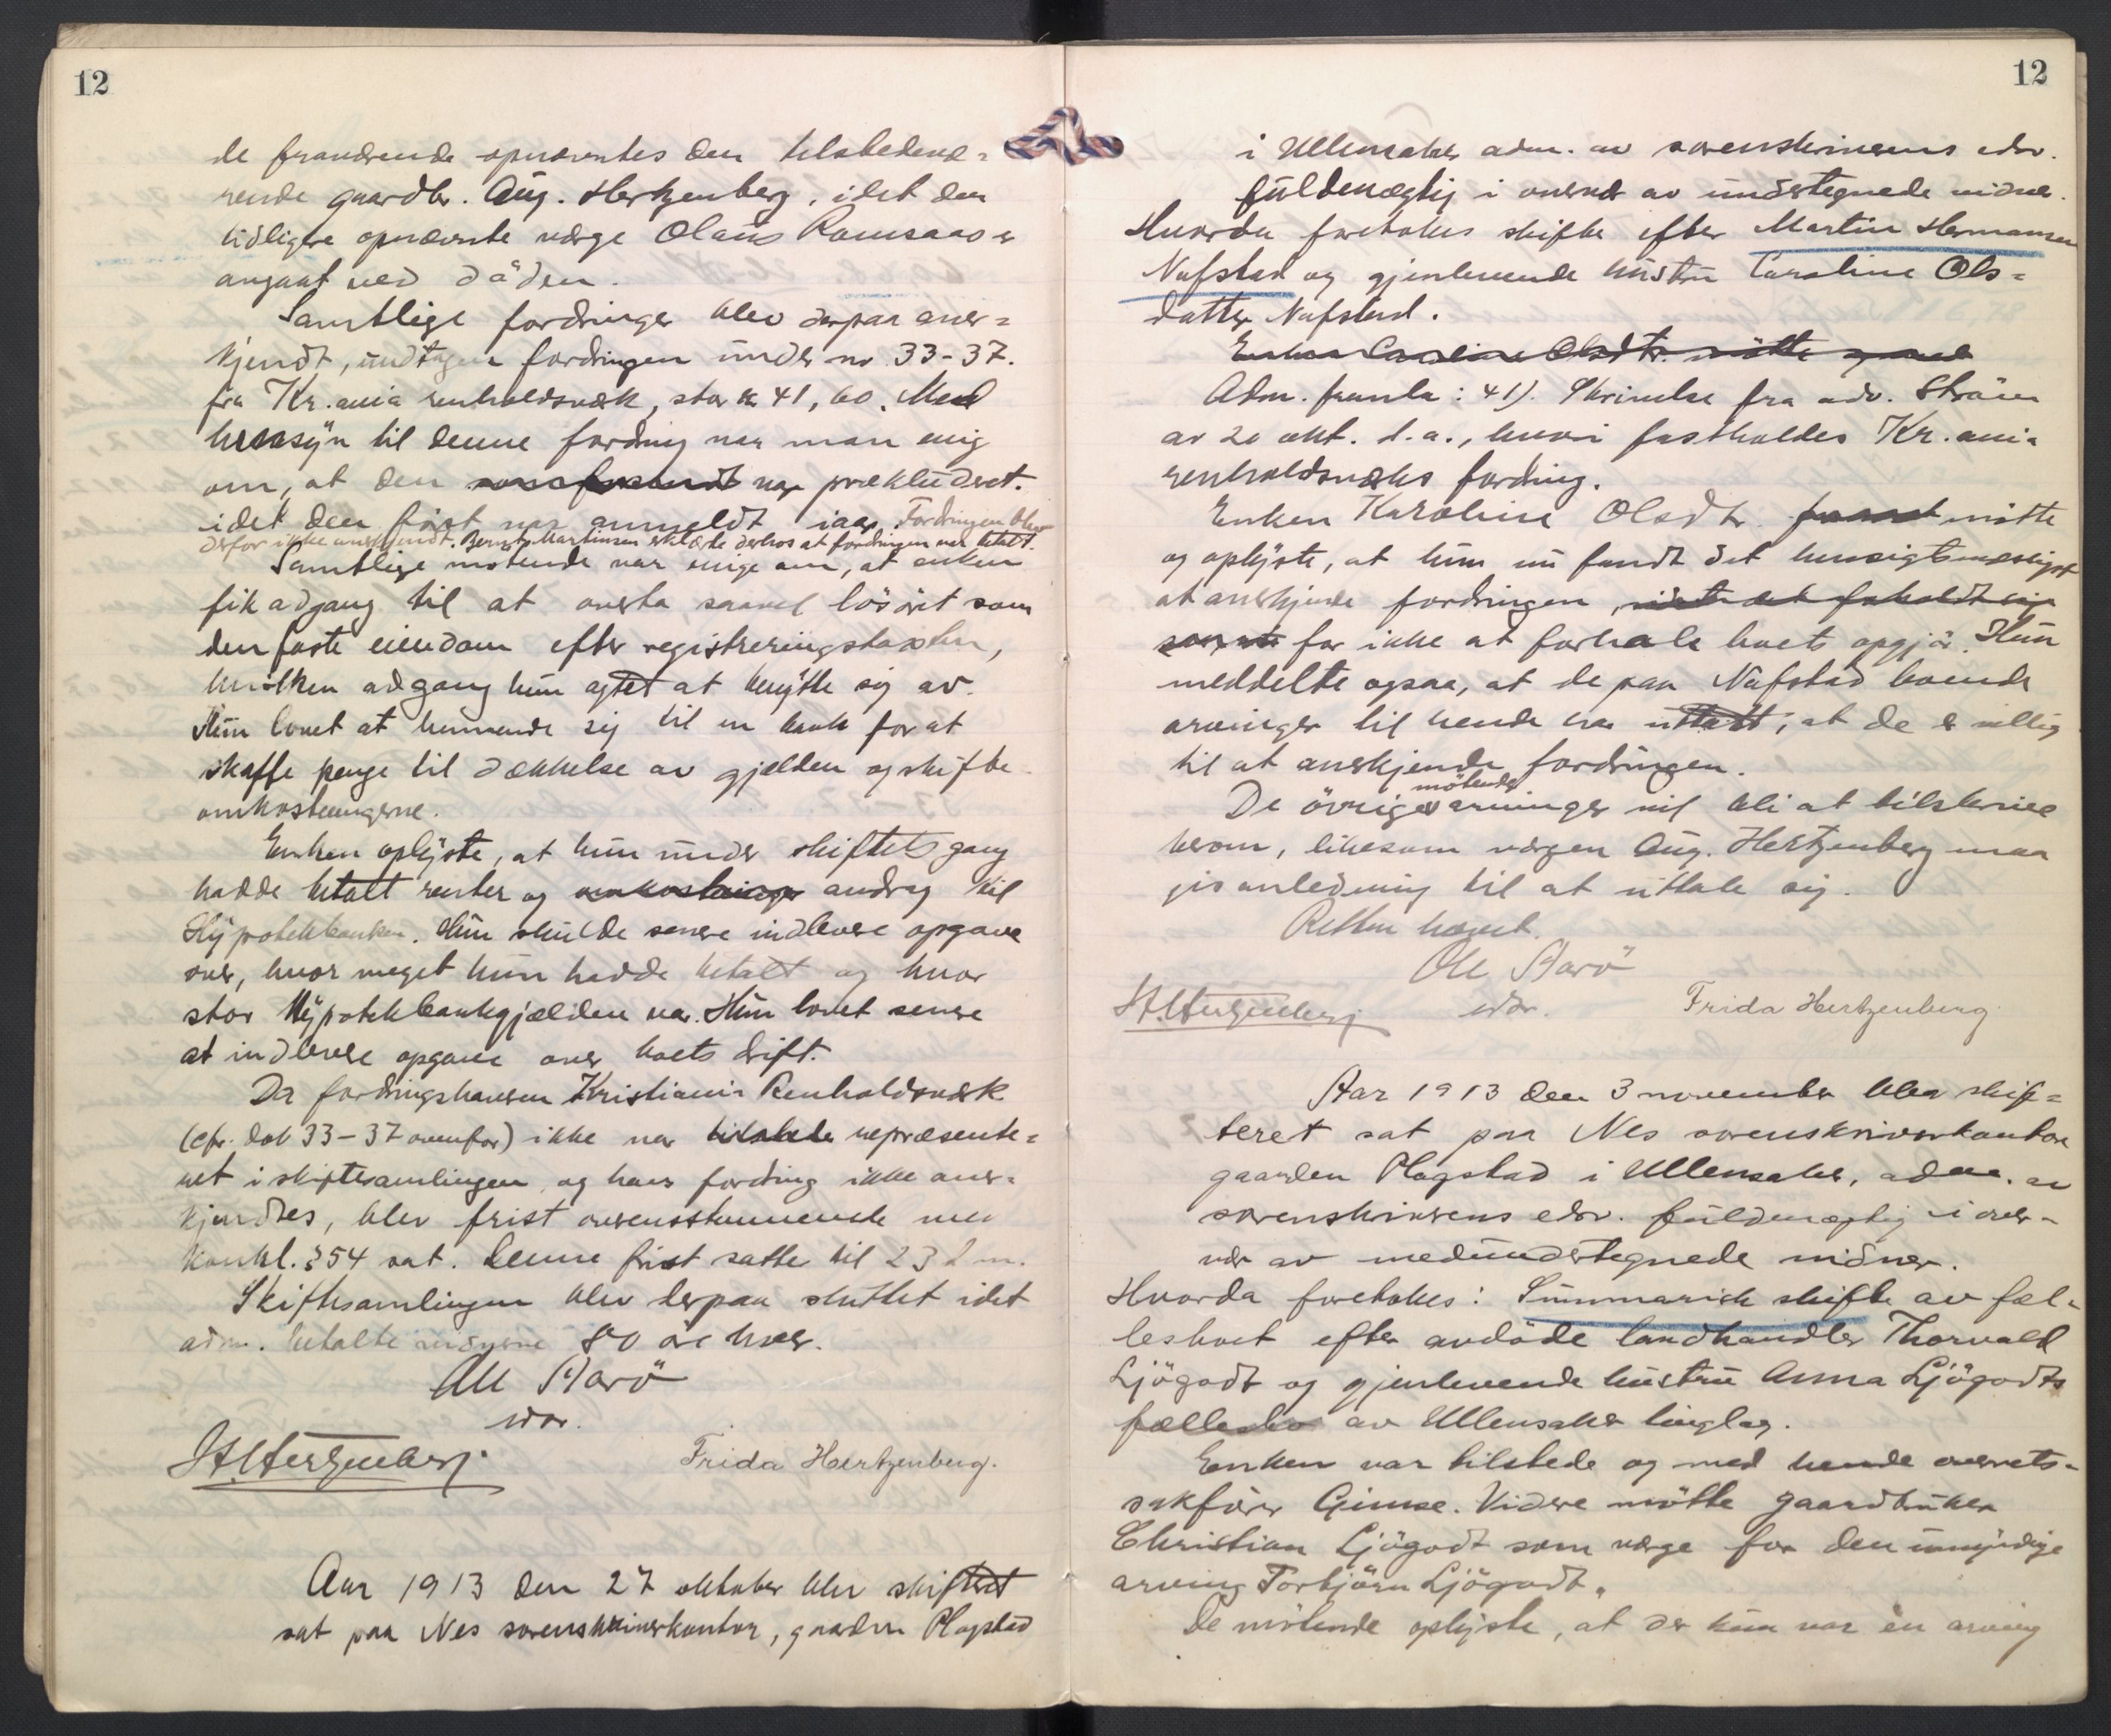 12
de fraværende opnævntes den tilstedevæ=
rende gaardbr. Aug. Hertzenberg, idet den
tidligere opnævnte værge Olaus Romsaas er
avgaat ved döden.
Samtlige fordringer blev derpaa aner=
kjendt, undtagen fordringen under no 33-37.
fra Kr.ania renholdsværk, stor kr 41,60. Med
hensyn til denne fordring var man enig
om, at den var prækludert.
idet den först var anmeldt iaar. Fordringen blev
derfor ikke anerkjendt. Bernt Martinsen erklærte derhos at fordringen var betalt.
Samtlige mötende var enige om, at enken
fik adgang til at overta saavel lösöret som
den faste eiendom efter registreringstaxten,
hvilken adgang hun agtet at benytte sig av.
Hun lovet at henvende sig til en bank for at
skaffe penge til dækkelse av gjælden og skifte
omkostningerne.
Enken oplyste, at hun under skiftets gang
hadde betalt renter og omkostninger avdrag til
Hypotekbanken. Hun skulde senere indlevere opgave
over, hvor meget hun hadde betalt og hvor
stor Hypotekbankgjælden var. Hun lovet senere
at indlevere opgave over boets drift.
Da fordringshaveren Kristiania Renholdsværk
(cfr. dok 33-37 ovenfor) ikke var tilstede repræsente=
ret i skiftesamlingen og hans fordring ikke aner=
kjendtes, blev frist overensstemmende med
konkl. § 54 sat. Denne frist sattes til 23 d.m.
Skiftesamlingen blev derpaa sluttet idet
adm. betalte vidnerne 80 öre hver.
Ole Aarö
edsv.
H. Hertzenberg.
Frida Hertzenberg.
Aar 1913 den 27 oktober blev skifteret
sat paa Nes sorenskriverkontor, gaarden Plogstad
12
i Ullensaker adm. av sorenskriverens edsv.
fuldmægtig i overvær av undertegnede vidner.
Hvorda foretokes skifte efter Martin Hermansen
Nafstad og gjenlevende hustru Caroline Ols=
datter Nafstad.
Enken Caroline Olsdtr. mötte
Adm. fremla: 41). Skrivelse fra adv. Ström
av 20 okt. d.a., hvori fastholdes Kr.ania
renholdsværks fordring.
Enken Karoline Olsdtr. mötte
og oplyste, at hun nu fandt det hensigtsmæssigst
at anerkjende fordringen, idet det forholdt sig
for ikke at forhale boets opgjör. Hun
meddelte ogsaa, at de paa Nafstad boende
arvinger til hende har uttalt, at de er villig
til at anerkjende fordringen.
mötende
De övrige arvinger vil bli at tilskrive
herom, likesom værgen Aug. Hertzenberg maa
gis anledning til at uttale sig.
Retten hævet.
Ole Aarö
edsv.
H. Hertzenberg
Frida Hertzenberg
Aar 1913 den 3 november blev skif=
teret sat paa Nes sorenskriverkontor
gaarden Plogstad i Ullensaker, adm. av
sorenskriverens edsv. fuldmægtig i over=
vær av medundertegnede vidner.
Hvorda foretokes: Summarisk skifte av fæl=
lesboet efter avdöde landhandler Thorvald
Ljögodt og gjenlevende hustru Anna Ljögodts
fællesbo av Ullensaker tinglag.
Enken var tilstede og med hende overrets=
sakförer Gimse. Videre mötte gaardbruker
Christian Ljögodt som værge for den umyndige
arving Torbjörn Ljögodt.
De mötende oplyste, at der kun var en arving